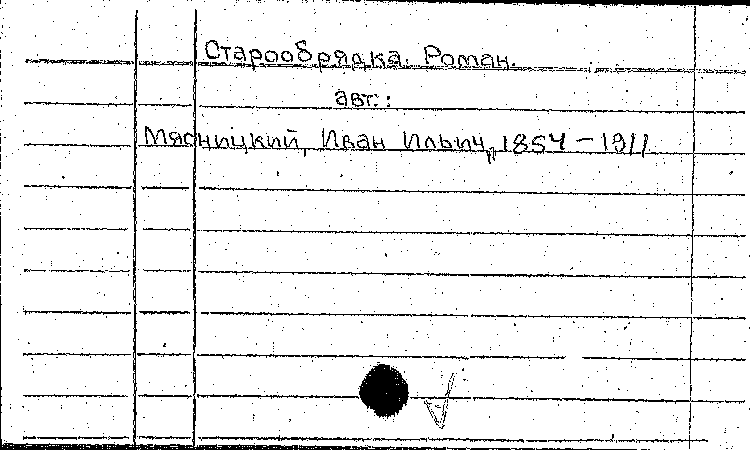 Старообрядка. Роман.
авт.:
Мясницкий, Иван Ильич, 1854 – 1911